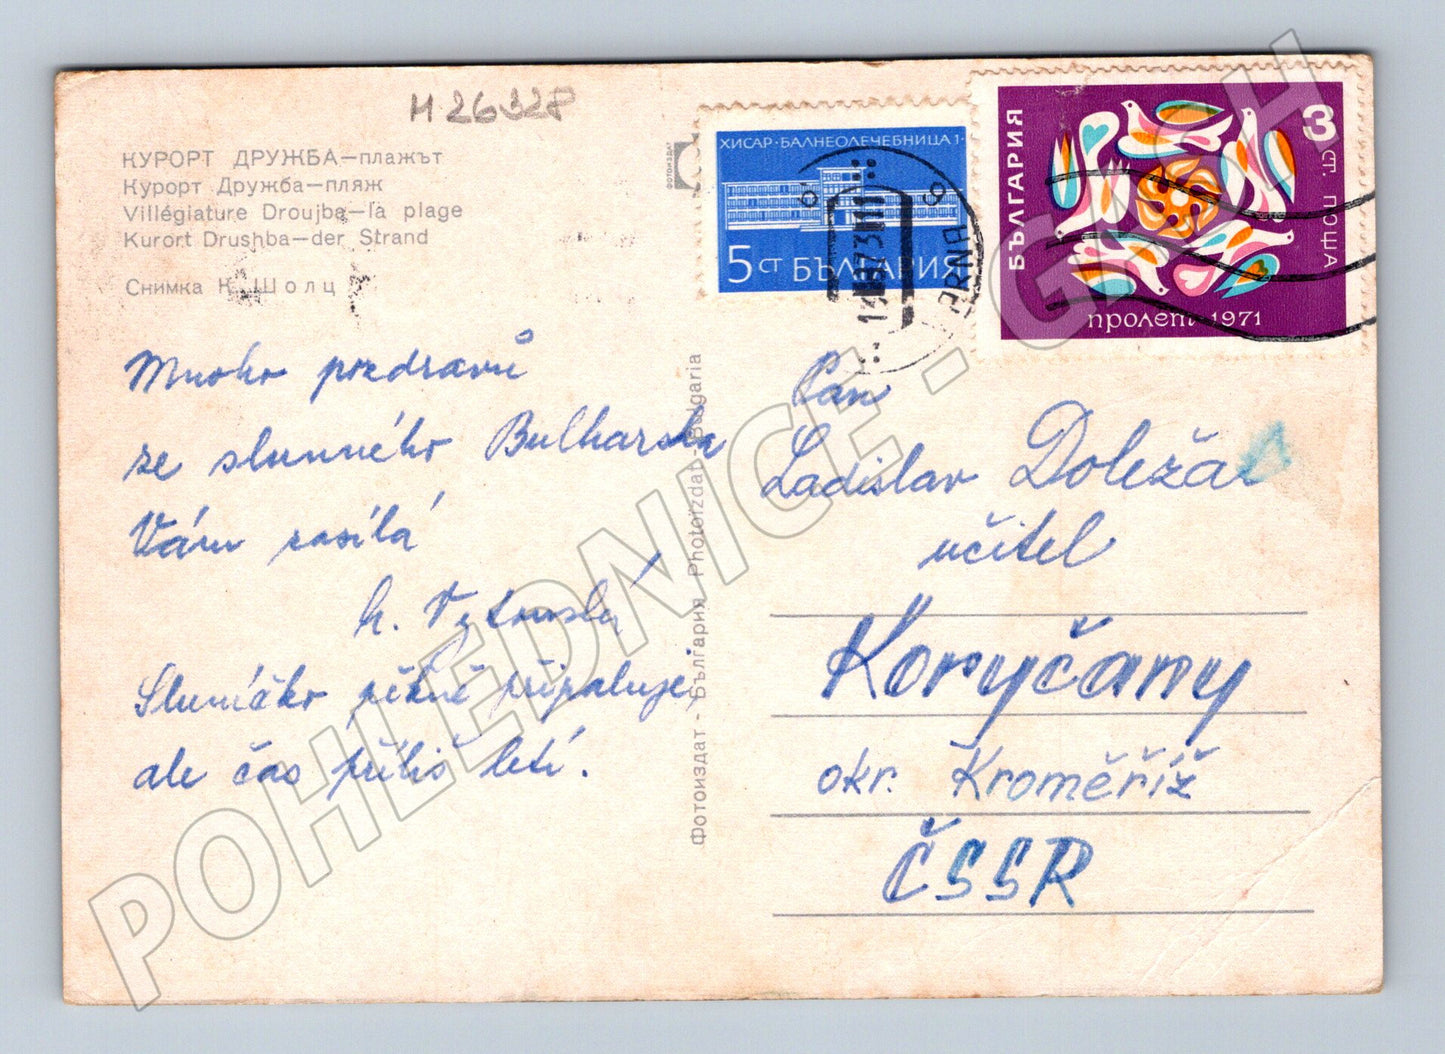 M 26328
КУРОРТ ДРУЖБА—плажът
Курорт Дружба—пляж
Villégiature Droujba—la plage
Kurort Drushba—der Strand
Снимка К. Шолц
ФОТОИЗДАТ
ХИСАР·БАЛНЕОЛЕЧЕБНИЦА 1·
5 СТ БЪЛГАРИЯ
БЪЛГАРИЯ
3 СТ. ПОЩА
пролет·1971
Mnoho pozdravů
ze slunného Bulharska
Vám zasílá
Sluníčko pěkně připaluje,
ale čas příliš letí.
Фотоиздат - България Photoizdat - Bulgaria
Pan
Ladislav Doležal
učitel
Koryčany
okr. Kroměříž
ČSSR
POHLEDNICE - GASH